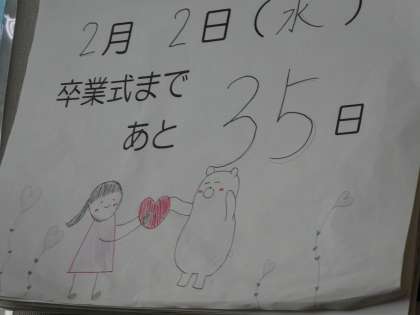 2月 2日(水)
卒業式まで
あと 35日